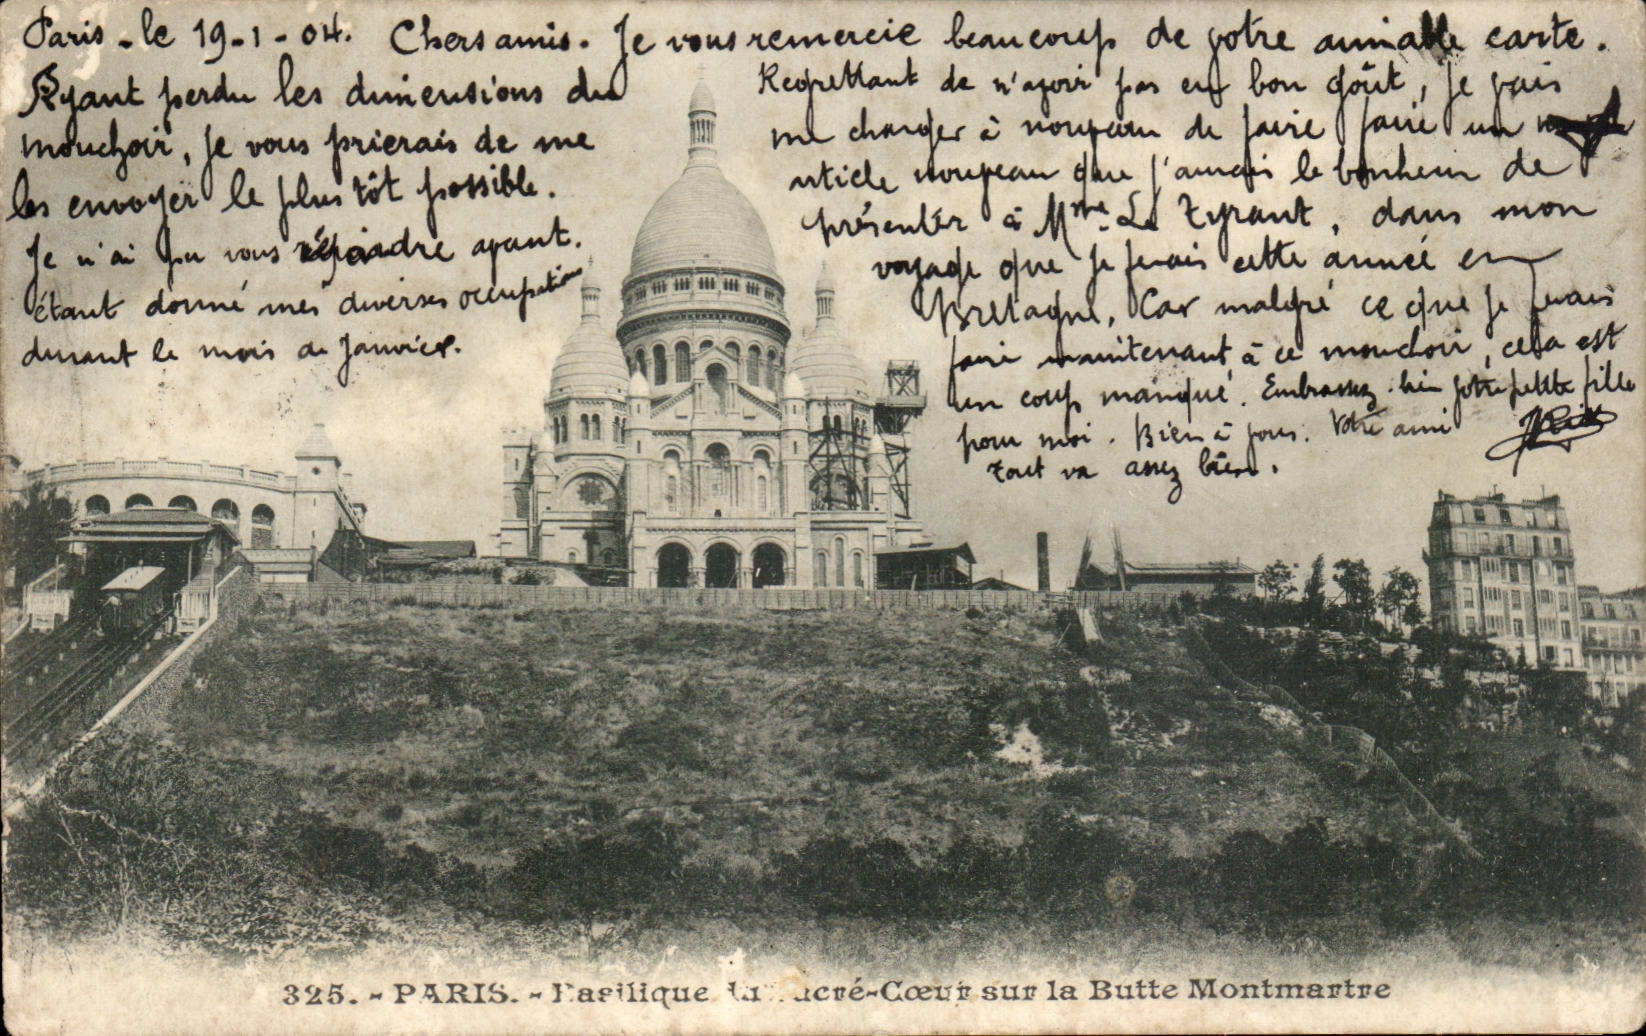 Paris - le 19-1-04. Chers amis. Je vous remercie beaucoup de votre aimable carte.
Ayant perdu les dimensions du
mouchoir, je vous prierais de me
les envoyer le plus tôt possible.
Je n'ai pu vous répondre avant.
étant donné mes diverses occupations
durant le mois de Janvier.
Regrettant de n'avoir pas eu bon goût, je vais
me charger à nouveau de faire faire un
article nouveau que j'aurais le bonheur de
présenter à Mme Le Tyrant, dans mon
voyage que je ferais cette année en
Bretagne, Car malgré ce que je ferais
faire maintenant à ce mouchoir, cela est
un coup manqué. Embrassez bien votre petite fille
pour moi. Bien à vous. Votre ami
tout va assez bien.
325. - PARIS. - Basilique du Sacré-Cœur sur la Butte Montmartre